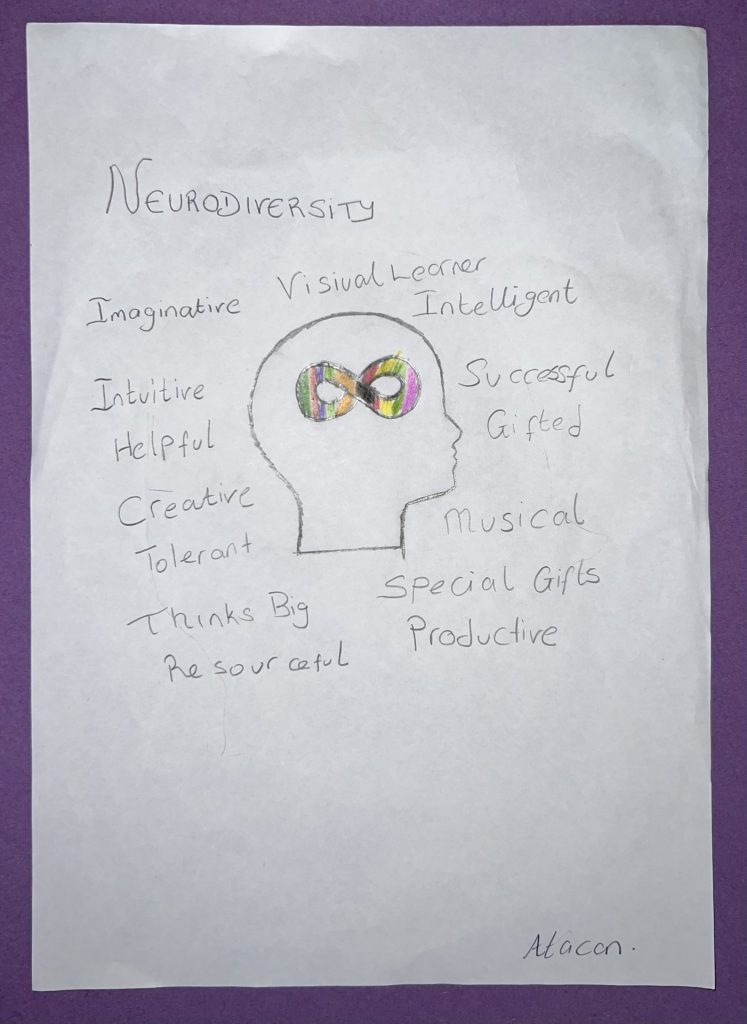 NEURODIVERSITY
Visiual Learner
Imaginative
Intelligent
Intuitive
Successful
Helpful
Gifted
Creative
Musical
Tolerant
Special Gifts
Thinks Big
Productive
Resourceful
Atacan.